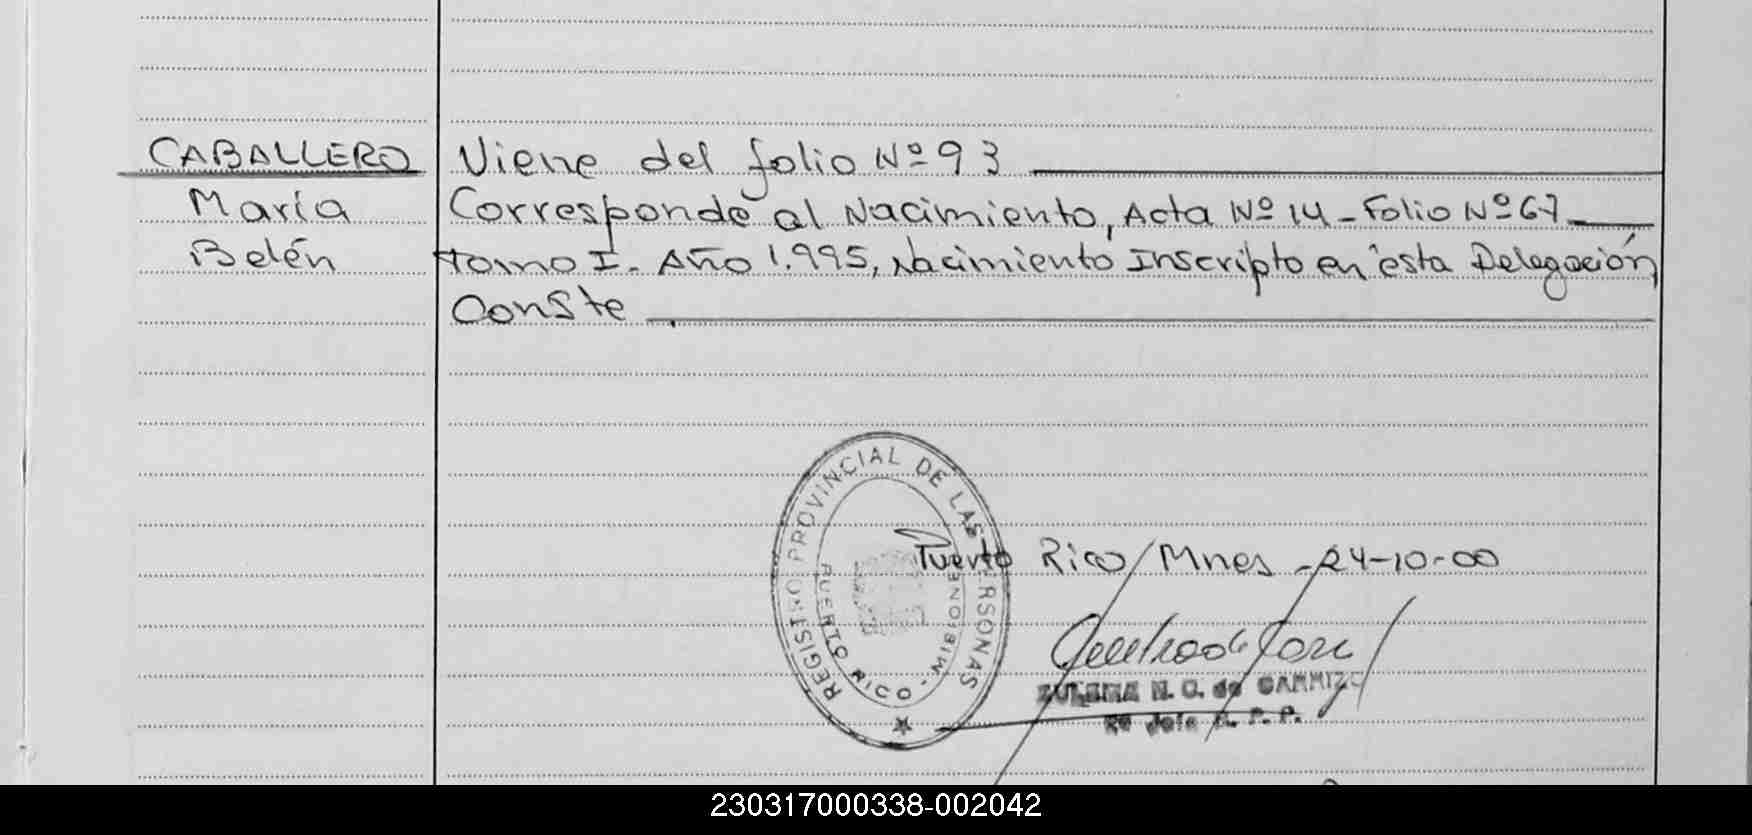 CABALLERO
María
Belén
Viene del folio Nº 93
Corresponde al Nacimiento, Acta Nº 14 - Folio Nº 67
tomo I. Año 1.995, Nacimiento Inscripto en ésta Delegación
Conste
REGISTRO PROVINCIAL DE LAS PERSONAS
PUERTO RICO - MISIONES
Puerto Rico/Mnes - 24-10-00
N. C. de
R. P. P.
230317000338-002042